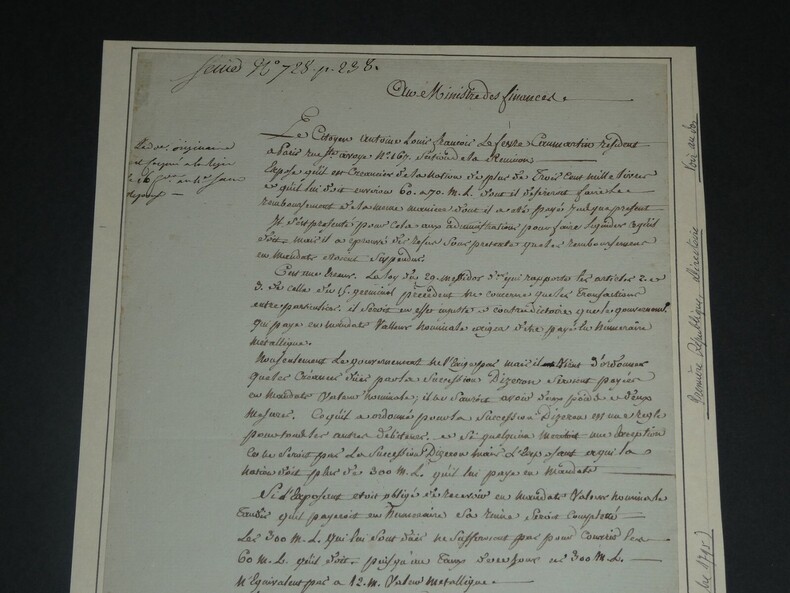 N.° 728. p. 238.
Au Ministre des finances.
Le Citoyen Antoine Louis françois Lefevre Caumartin resident
a Paris rue N.° 167.
Expose qu'il est Creancier de la nation de plus de Trois Cent mille livres
et qu'il lui doit environ 60. a 70. M. L. dont il desireroit faire le
remboursement de la meme maniere dont il a été payé jusqu'a present
Il s'est presenté pour cela aux administrations pour faire liquider ce qu'il
doit mais il a eprouvé des refus sous pretexte que les remboursements
en mandats etoient suspendus.
C'est une Erreur. La loy du 29. messidor qui rapporte les articles 2. et
3. de celle du 15. germinal precedent ne concerne que les Transactions
entre particuliers. il seroit en effet injuste et contradictoire que le gouvernement
qui paye en mandats Valleur nominale exigea d'etre payé en Numeraire
metallique.
Nonseulement Le gouvernement ne l'Exige pas mais il Vient d'ordonner
que les Creances dües par la Succession Dizeron seroient payées
en mandats Valeur nominale; il ne sauroit avoir deux poids et deux
mesures. Ce qu'il a ordonné pour la Succession Dizeron est une regle
pour tous les autres debiteurs. et si quelqu'un meritoit une Exception
ce ne seroit pas La Succession Dizeron mais L'Exposant a qui la
nation doit plus de 300 M. L. qu'il lui paye en Mandats
Si l'Exposant etoit obligé de recevoir en mandats Valeur nominale
tandis qu'il payeroit en Numeraire sa ruine seroit Complette
Les 300 M. L. qui lui sont dües ne suffiroient pas pour Couvrir les
60 M. L. qu'il doit puisqu'au Taux 300 M. L.
N'Equivalent pas a 12. M. Valeur Metallique.
Première République, Directoire
Voir au dos
1795